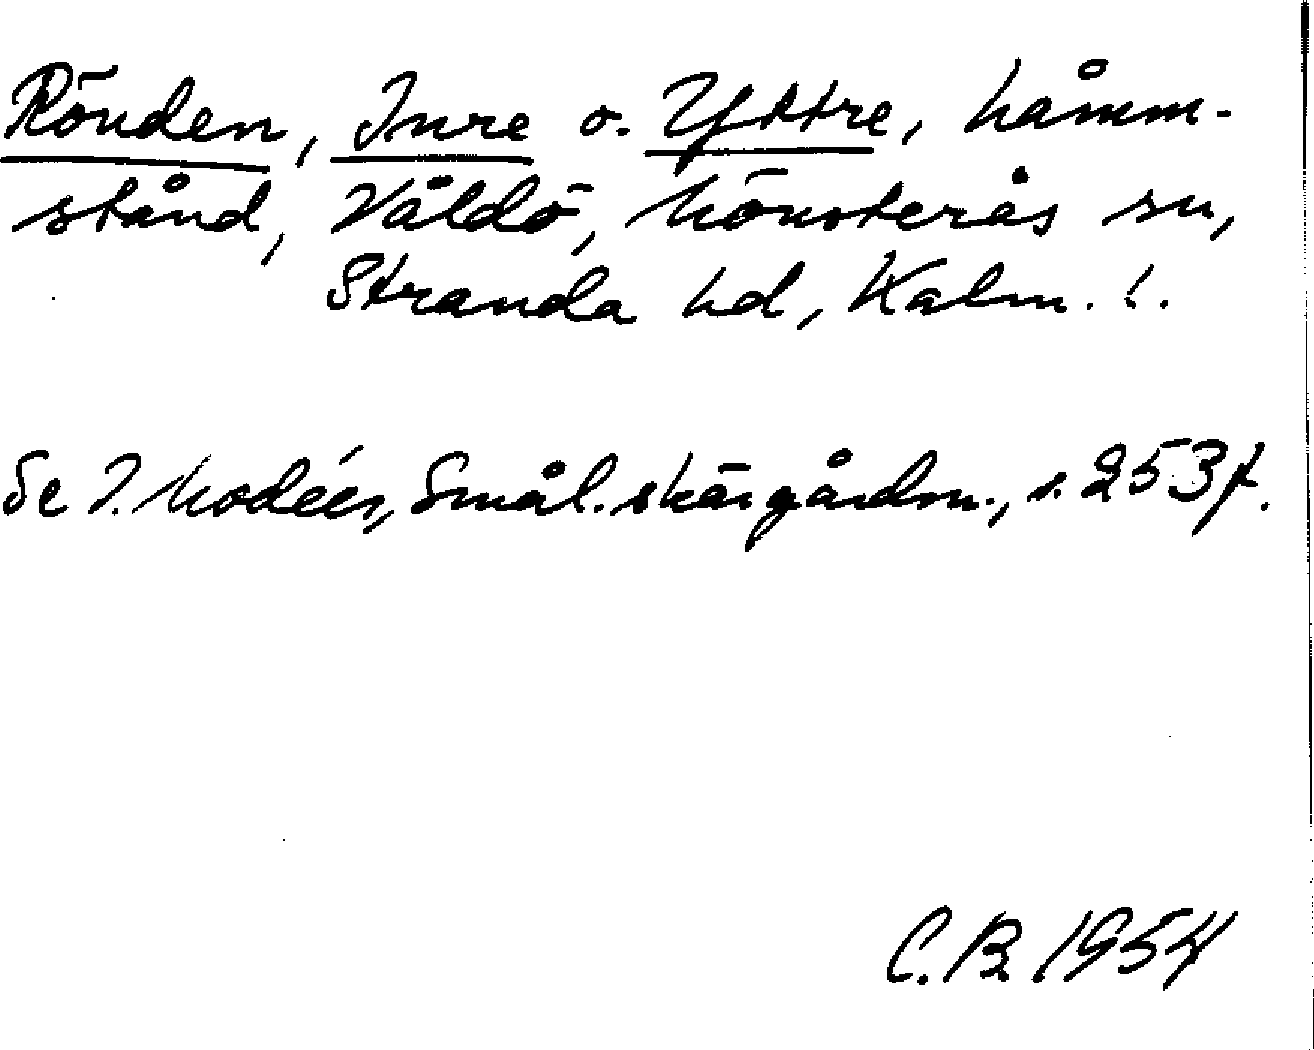 Rönden, Inre o. Yttre, håmm-
stånd, Våldö, Mönsterås sn,
Stranda hd, Kalm. l.
Se I. Modéer, Smål. skärgårdsn., s. 253 f.
C. B. 1954